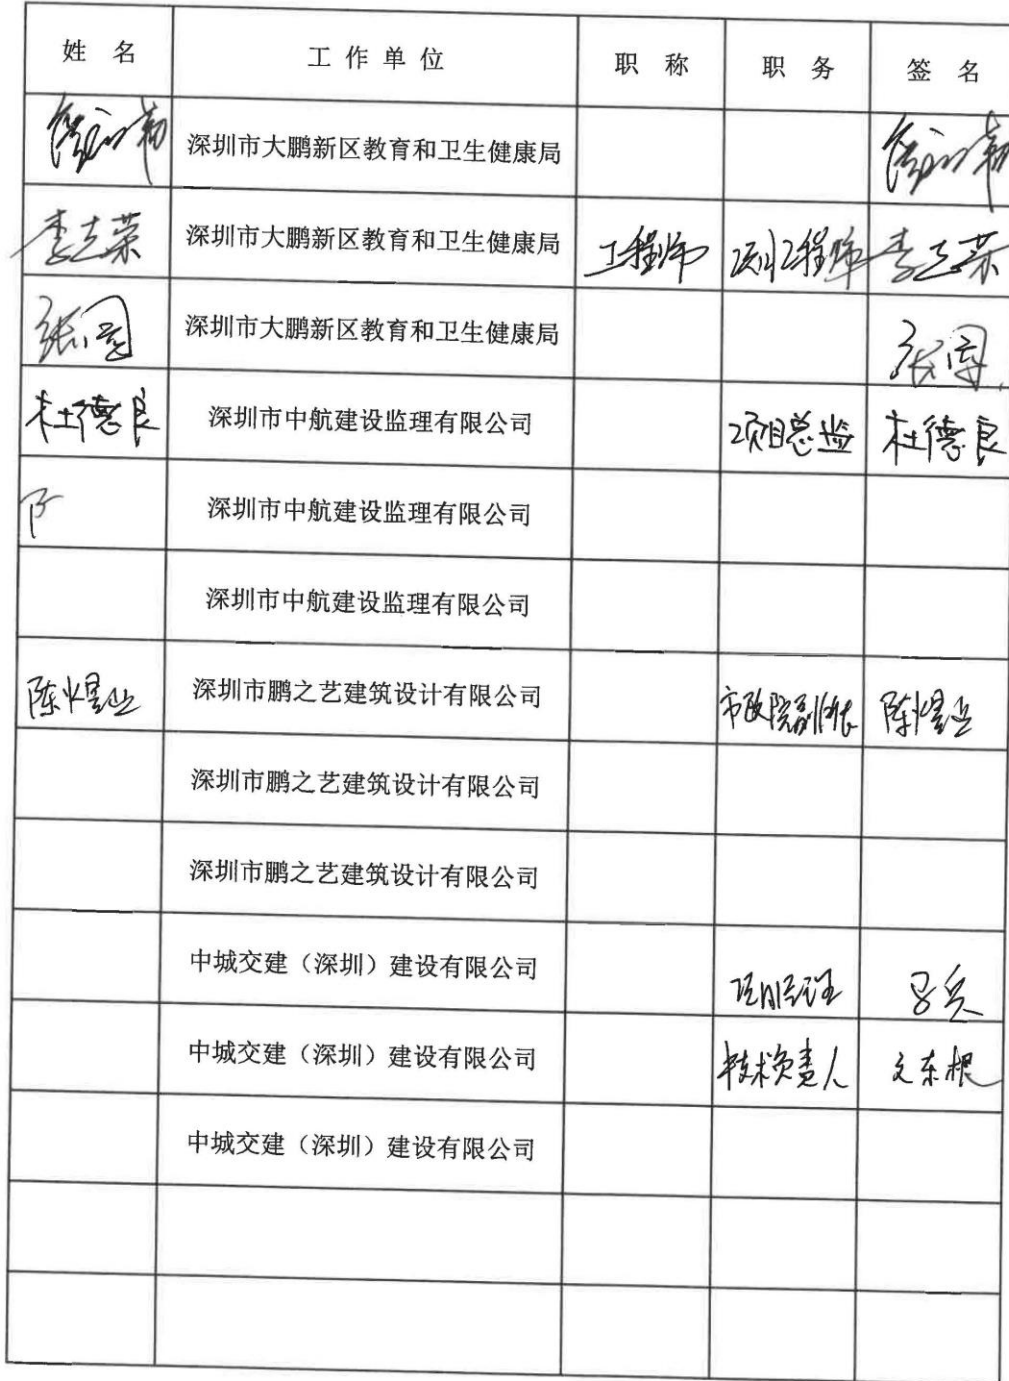 姓 名 工 作 单 位 职 称 职 务 签 名
深圳市大鹏新区教育和卫生健康局
李志荣 深圳市大鹏新区教育和卫生健康局 工程师 工程师 李志荣
张 深圳市大鹏新区教育和卫生健康局 张
杜德良 深圳市中航建设监理有限公司 项目总监 杜德良
深圳市中航建设监理有限公司
深圳市中航建设监理有限公司
陈煜 深圳市鹏之艺建筑设计有限公司 市政院副 陈煜
深圳市鹏之艺建筑设计有限公司
深圳市鹏之艺建筑设计有限公司
中城交建（深圳）建设有限公司 项目经理
中城交建（深圳）建设有限公司 技术负责人 文东根
中城交建（深圳）建设有限公司